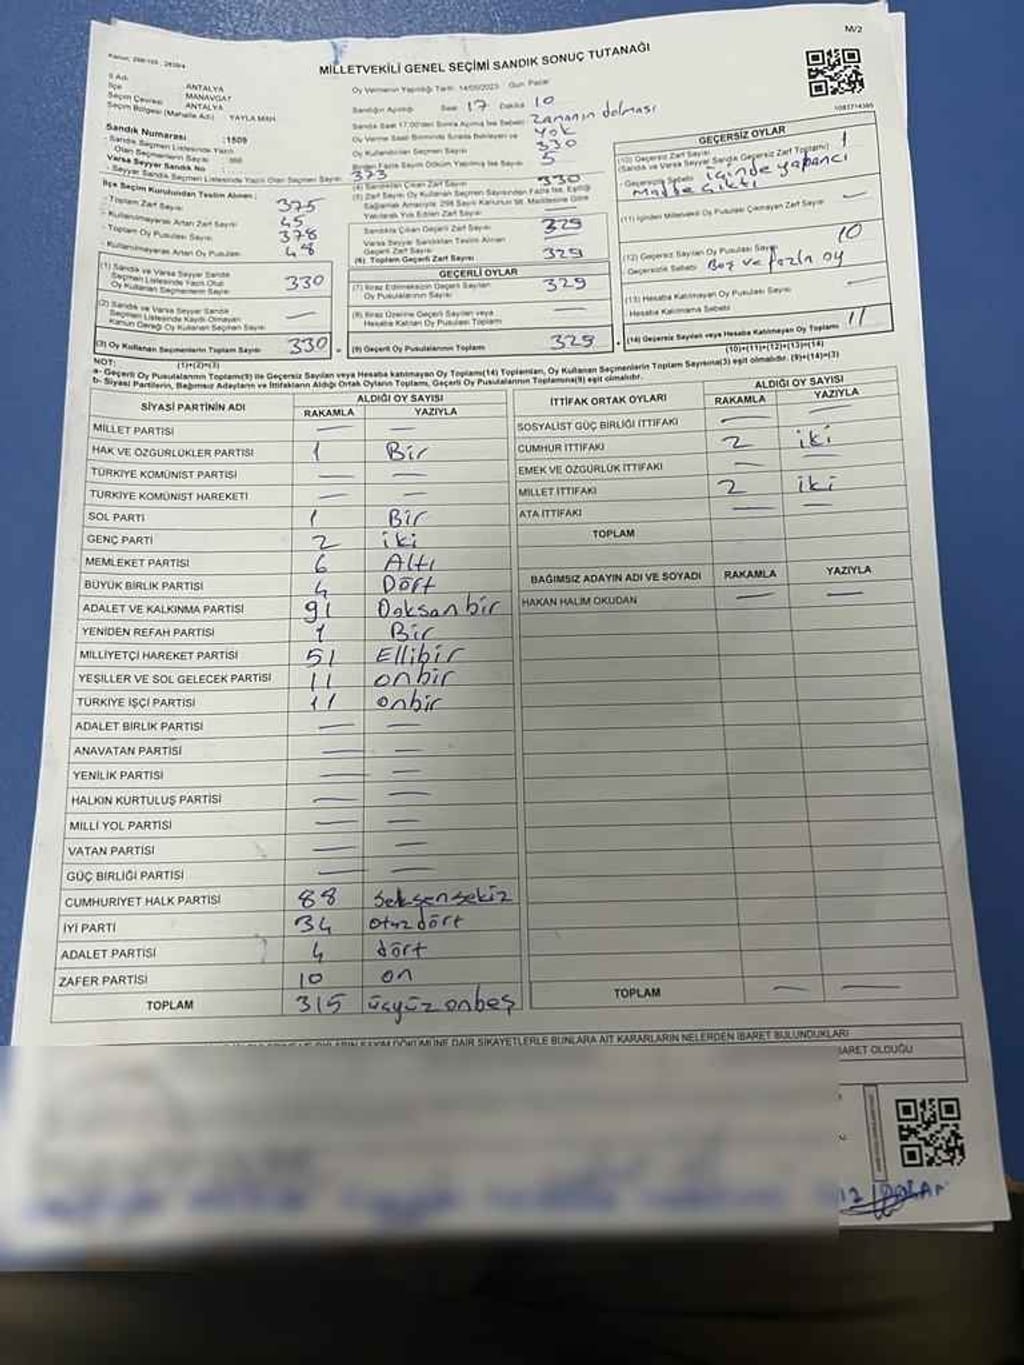 M/2
MİLLETVEKİLİ GENEL SEÇİMİ SANDIK SONUÇ TUTANAĞI
İl Adı: ANTALYA
İlçe MANAVGAT
Seçim Çevresi ANTALYA
Seçim Bölgesi (Mahalle Adı) YAYLA MAH.
Sandık Numarası :1509
Oy Vermenin Yapıldığı Tarih: 14/05/2023 Gün: Pazar
Sandığın Açıldığı Saat 17 Dakika 10
Sandık Saat 17:00'den Sonra Açılma İse Sebebi Zamanın dolması
Oy Verme Saati Bitiminde Sırada Bekleyen yok
Oy Kullandırılan Seçmen Sayısı 330
Birden Fazla Sayım Döküm Yapılma İse Sayısı 5
- Sandık Seçmen Listesinde Yazılı
Olan Seçmenlerin Sayısı
Varsa Seyyar Sandık No
- Seyyar Sandık Seçmen Listesinde Yazılı Olan Seçmen Sayısı 373
İlçe Seçim Kurulundan Teslim Alınan;
- Toplam Zarf Sayısı 375
- Kullanılmayarak Artan Zarf Sayısı 45
- Toplam Oy Pusulası Sayısı 378
- Kullanılmayarak Artan Oy Pusulası 48
(1) Sandık ve Varsa Seyyar Sandık
Seçmen Listesinde Yazılı Olup
Oy Kullanan Seçmenlerin Sayısı 330
(2) Sandık ve Varsa Seyyar Sandık
Seçmen Listesinde Kaydı Olmayan
Kanun Gereği Oy Kullanan Seçmen Sayısı —
(3) Oy Kullanan Seçmenlerin Toplam Sayısı 330
(1)+(2)=(3)
(4) Sandıktan Çıkan Zarf Sayısı 330
(5) Zarf Sayısı Oy Kullanan Seçmen Sayısından Fazla İse, Eşitliği
Sağlamak Amacıyla, 298 Sayılı Kanunun 98. Maddesine Göre
Yakılarak Yok Edilen Zarf Sayısı —
Sandıkta Çıkan Geçerli Zarf Sayısı 329
Varsa Seyyar Sandıktan Teslim Alınan
Geçerli Zarf Sayısı —
(6) Toplam Geçerli Zarf Sayısı 329
GEÇERLİ OYLAR
(7) İtiraz Edilmeksizin Geçerli Sayılan
Oy Pusulalarının Sayısı 329
(8) İtiraz Üzerine Geçerli Sayılan veya
Hesaba Katılan Oy Pusulası Toplamı —
(9) Geçerli Oy Pusulalarının Toplamı 329
GEÇERSİZ OYLAR
(10) Geçersiz Zarf Sayısı 1
(Sandık ve Varsa Seyyar Sandık Geçersiz Zarf Toplamı)
- Geçersizlik Sebebi içinde yabancı
Madde Çıktı
(11) İçinden Milletvekili Oy Pusulası Çıkmayan Zarf Sayısı —
(12) Geçersiz Sayılan Oy Pusulası Sayısı 10
Geçersizlik Sebebi Boş ve fazla oy
(13) Hesaba Katılmayan Oy Pusulası Sayısı —
Hesaba Katılmama Sebebi
(14) Geçersiz Sayılan veya Hesaba Katılmayan Oy Toplamı 11
(10)+(11)+(12)+(13)=(14)
NOT:
a- Geçerli Oy Pusulalarının Toplamı(9) ile Geçersiz Sayılan veya Hesaba Katılmayan Oy Toplamı(14) Toplamları, Oy Kullanan Seçmenlerin Toplam Sayısına(3) eşit olmalıdır. (9)+(14)=(3)
b- Siyasi Partilerin, Bağımsız Adayların ve İttifakların Aldığı Ortak Oyların Toplamı, Geçerli Oy Pusulalarının Toplamına(9) eşit olmalıdır.
SİYASİ PARTİNİN ADI ALDIĞI OY SAYISI
RAKAMLA YAZIYLA
MİLLET PARTİSİ — —
HAK VE ÖZGÜRLÜKLER PARTİSİ 1 Bir
TÜRKİYE KOMÜNİST PARTİSİ — —
TÜRKİYE KOMÜNİST HAREKETİ — —
SOL PARTİ 1 Bir
GENÇ PARTİ 2 iki
MEMLEKET PARTİSİ 6 Altı
BÜYÜK BİRLİK PARTİSİ 4 Dört
ADALET VE KALKINMA PARTİSİ 91 Doksan bir
YENİDEN REFAH PARTİSİ 1 Bir
MİLLİYETÇİ HAREKET PARTİSİ 51 Ellibir
YEŞİLLER VE SOL GELECEK PARTİSİ 11 onbir
TÜRKİYE İŞÇİ PARTİSİ 11 onbir
ADALET BİRLİK PARTİSİ — —
ANAVATAN PARTİSİ — —
YENİLİK PARTİSİ — —
HALKIN KURTULUŞ PARTİSİ — —
MİLLİ YOL PARTİSİ — —
VATAN PARTİSİ — —
GÜÇ BİRLİĞİ PARTİSİ — —
CUMHURİYET HALK PARTİSİ 88 Seksensekiz
İYİ PARTİ 34 otuzdört
ADALET PARTİSİ 4 dört
ZAFER PARTİSİ 10 on
TOPLAM 315 üçyüzonbeş
İTTİFAK ORTAK OYLARI ALDIĞI OY SAYISI
RAKAMLA YAZIYLA
SOSYALİST GÜÇ BİRLİĞİ İTTİFAKI — —
CUMHUR İTTİFAKI 2 iki
EMEK VE ÖZGÜRLÜK İTTİFAKI — —
MİLLET İTTİFAKI 2 iki
ATA İTTİFAKI — —
TOPLAM
BAĞIMSIZ ADAYIN ADI VE SOYADI RAKAMLA YAZIYLA
HAKAN HALİM OKUDAN — —
TOPLAM — —
DÖKÜMÜNE DAİR ŞİKAYETLERLE BUNLARA AİT KARARLARIN NELERDEN İBARET BULUNDUKLARI
İBARET OLDUĞU